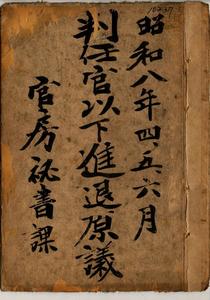 昭和八年四、五、六月
判任官以下進退原議
官房秘書課